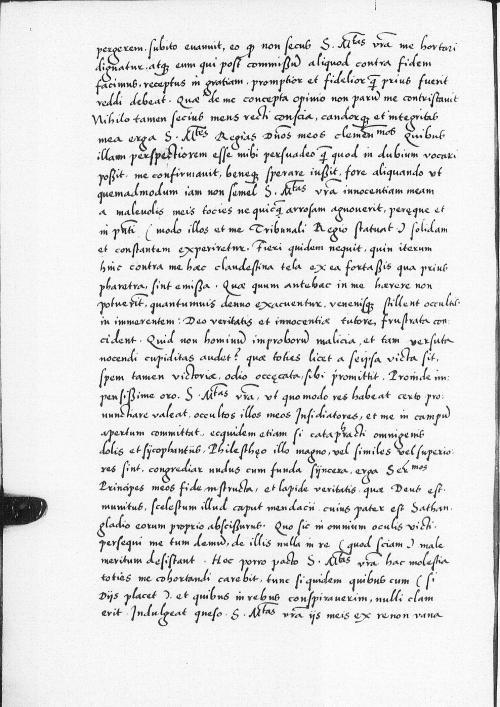 pergerem. subito evanuit, eo q̃ non secus S. Mtas vrã me hortari
dignatur. atq̃ eum qui post commissũ aliquod contra fidem
facimus, receptus in gratiam. promptior et fidelior q̃ prius fuerit
reddi debeat. Quæ de me concepta opinio non parũ me contristauit
Nihilo tamen secius mens recti conscia, candorq̃ et integritas
mea erga S. Mtes Regias Dños meos clementmos Quibus
illam perspectiorem esse mihi persuadeo q̃ quod in dubium vocari
possit. me confirmauit, beneq̃ sperare iussit, fore aliquando vt
quemadmodum iam non semel S. Mtas vrã innocentiam meam
a maleuolis meis toties nequicq̃ arrosam agnouerit, pereque et
in pñti (modo illos et me Tribunali Regio statuat) solidam
et constantem experiretur. Fieri quidem nequit, quin iterum
hinc contra me hac clandestina tela ex ea fortassis qua prius
pharetra, sint emissa. Quæ quum antehac in me hærere non
potuerit, quantumuis denuo exacuentur, venenisq̃ stillent occultis
in immerentem: Deo veritatis et innocentiæ tutore, frustrata con:
cident. Quid non hominũ improborũ malicia, et tam versuta
nocendi cupiditas audet? quæ toties licet a seipsa victa sit,
spem tamen victoriæ, odio occęcata, sibi promittit. Proinde im:
pensissime oro. S. Mtas vrã, vt quo modo res habeat certo pro:
nunciare valeat, occultos illos meos Insidiatores, et me in campũ
apertum committat. ecquidem etiam si cataphracti omnigenis
dolis et sÿcophantiis, Philestheo illo magno, vel similes vel superio:
res sint. congrediar nudus cum funda sÿncera, erga Sermos
Principes meos fide instructa, et lapide veritatis. quæ Deus est.
munitus, scelestum illud caput mendacii. cuius pater est Sathan.
gladio eorum proprio abscissurus. Quo sic in omnium oculis victi
persequi me tum demũ, de illis nulla in re (quod sciam) male
meritum desistant. Hoc porro pacto S. Mtas vrã hac molestia
toties me cohortandi carebit, tunc siquidem quibus cum (si
Dijs placet) et quibus in rebus conspirauerim, nulli clam
erit. Indulgeat queso. S. Mtas vrã ijs meis ex re non vana